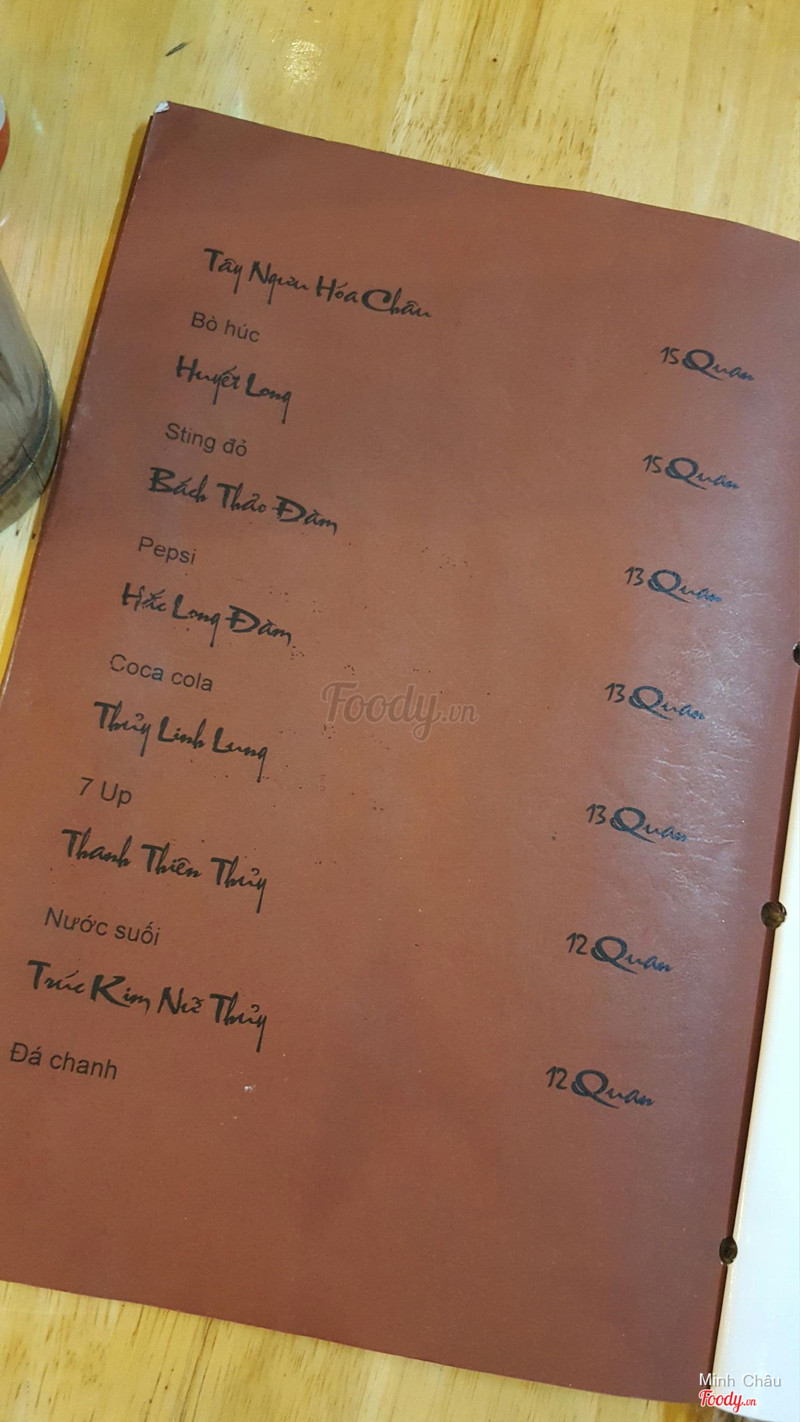 Tây Ngưu Hóa Châu
Bò húc
15 Quan
Huyết Long
Sting đỏ
15 Quan
Bách Thảo Đàm
Pepsi
13 Quan
Hắc Long Đàm
Coca cola
13 Quan
Thủy Linh Lung
7 Up
13 Quan
Thanh Thiên Thủy
Nước suối
12 Quan
Trúc Kim Nữ Thủy
Đá chanh
12 Quan
Foody.vn
Minh Châu
Foody.vn